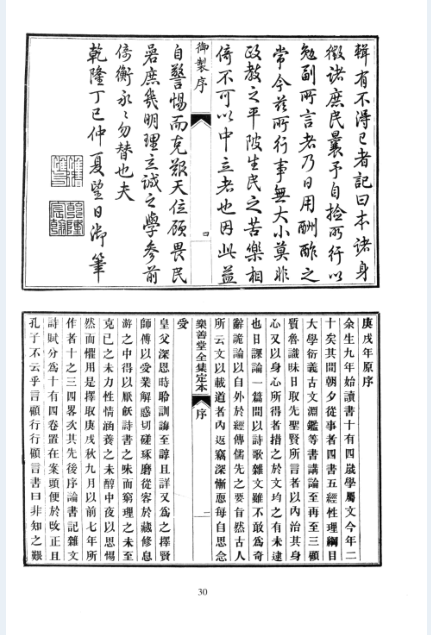 輯有不得已者記曰本諸身
徵諸庶民曩予自撿所行以
勉副所言者乃日用酬酢之
常今茲所行事無大小莫非
政教之平陂生民之苦樂相
倚不可以中立者也因此益
御製序
四
自警惕而克艱天位顧畏民
碞庶幾明理立誠之學參前
倚衡永永勿替也夫
乾隆丁巳仲夏望日御筆
惟精惟一
乾隆宸翰
庚戌年原序
余生九年始讀書十有四歲學屬文今年二
十矣其間朝夕從事者四書五經性理綱目
大學衍義古文淵鑑等書講論至再至三顧
質魯識昧日取先聖賢所言者以內治其身
心又以身心所得者措之於文均之有未逮
也日課論一篇間以詩歌雜文雖不敢為奇
辭詭論以自外於經傳儒先之要旨然古人
所云文以載道者內返竊深慚恧每自思念
樂善堂全集定本
序
一
受
皇父深恩時聆訓誨至諄且詳又為之擇賢
師傅以受業解惑切磋琢磨從容於藏修息
游之中得以厭飫詩書之味而窮理之未至
克已之未力性情涵養之未醇中夜以思惕
然而懼用是擇取庚戌秋九月以前七年所
作者十之三四畧次其先後序論書記雜文
詩賦分為十有四卷置在案頭便於改正且
孔子不云乎言顧行行顧言書曰非知之艱
30